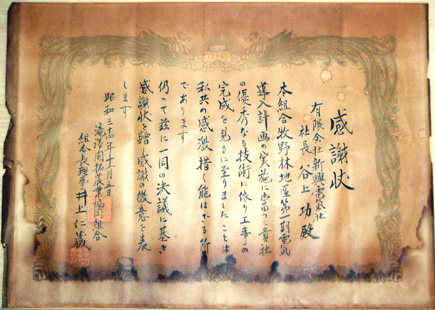 感謝状
有限会社新興電気社
社長 谷上 功殿
本組合牧野林地区第一期電気
導入計画の実施に当り貴社
の優秀なる技術に依り工事の
完成を見るに至りましたことは
私共の感激措く能はざる所
であります
仍って茲に一同の決議に基き
感謝状を贈り感謝の微意を表
します
昭和三年十一月五日
滝沢開拓農業協同組合
組合長理事 井上仁